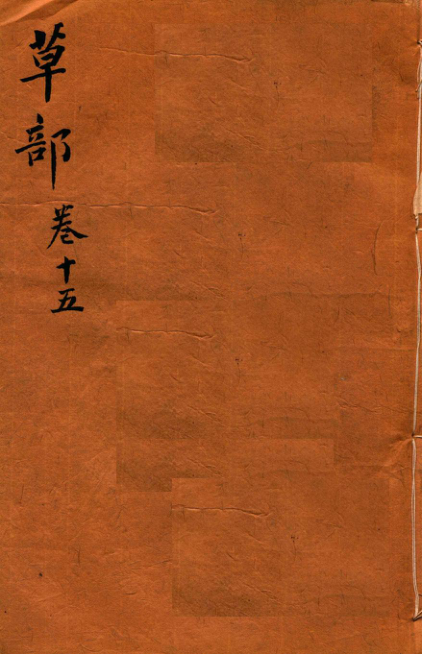 草部卷十五